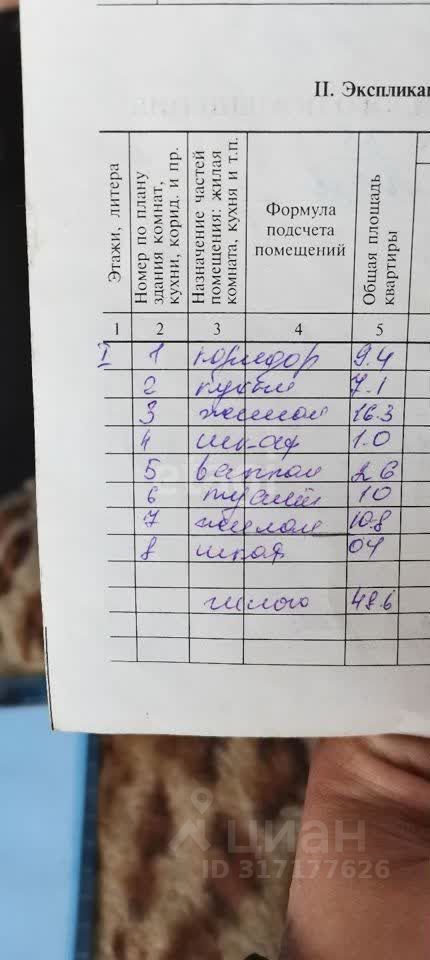 II. Экспликац
Этажи, литера
Номер по плану здания комнат, кухни, корид. и пр.
Назначение частей помещения: жилая комната, кухня и т.п.
Формула подсчета помещений
Общая площадь квартиры
1 2 3 4 5
I 1 коридор 9.4
2 кухня 7.1
3 жилая 16.3
4 шкаф 1.0
5 ванная 2 6
6 туалет 1 0
7 жилая 10.8
8 шкаф 0 4
48.6
циан
ID 317177626